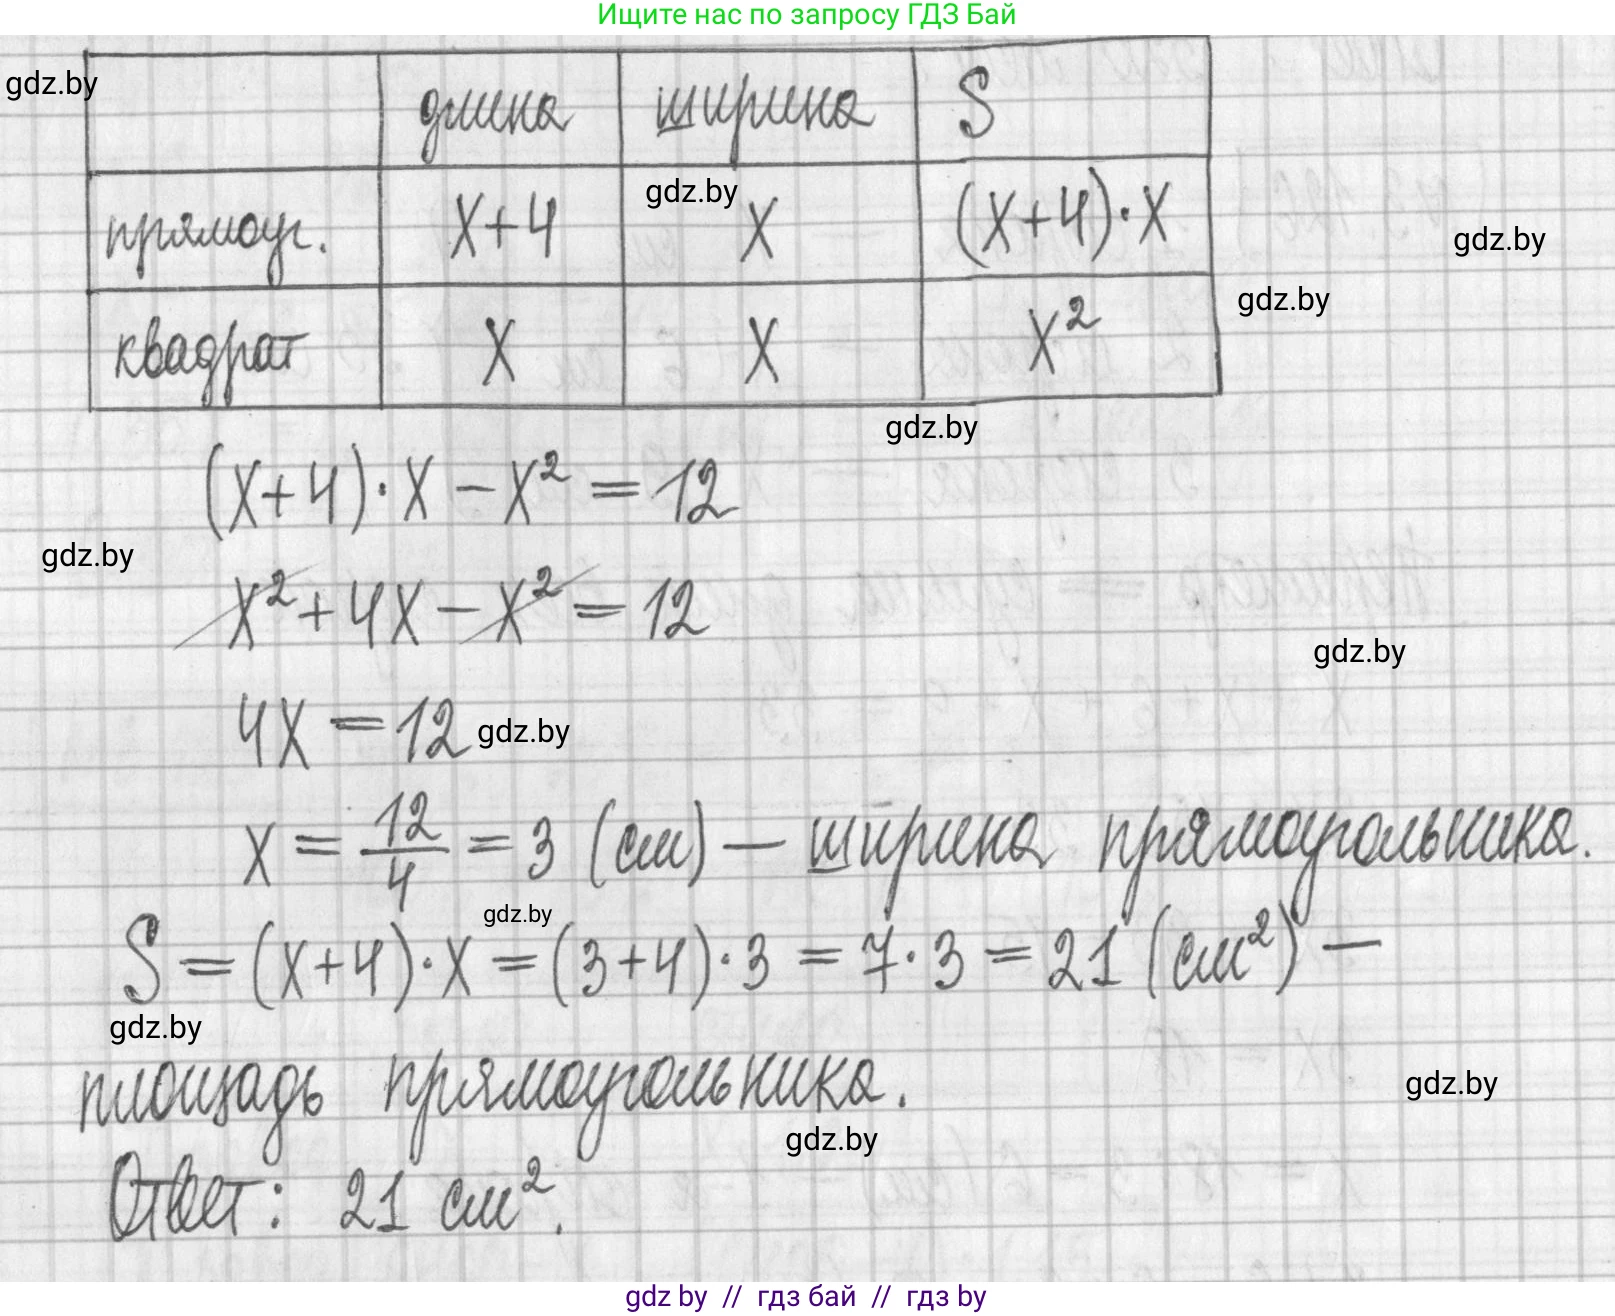 Ищите нас по запросу ГДЗ Бай
gdz.by
длина ширина S
gdz.by
прямоуг. X+4 X (X+4)·X
gdz.by
gdz.by
квадрат X X X²
gdz.by
(X+4)·X – X² = 12
gdz.by
X² + 4X – X² = 12
gdz.by
4X = 12
gdz.by
X = 12/4 = 3 (см) — ширина прямоугольника.
gdz.by
S = (X+4)·X = (3+4)·3 = 7·3 = 21 (см²) —
gdz.by
площадь прямоугольника.
gdz.by
gdz.by
Ответ: 21 см².
gdz by // гдз бай // гдз by